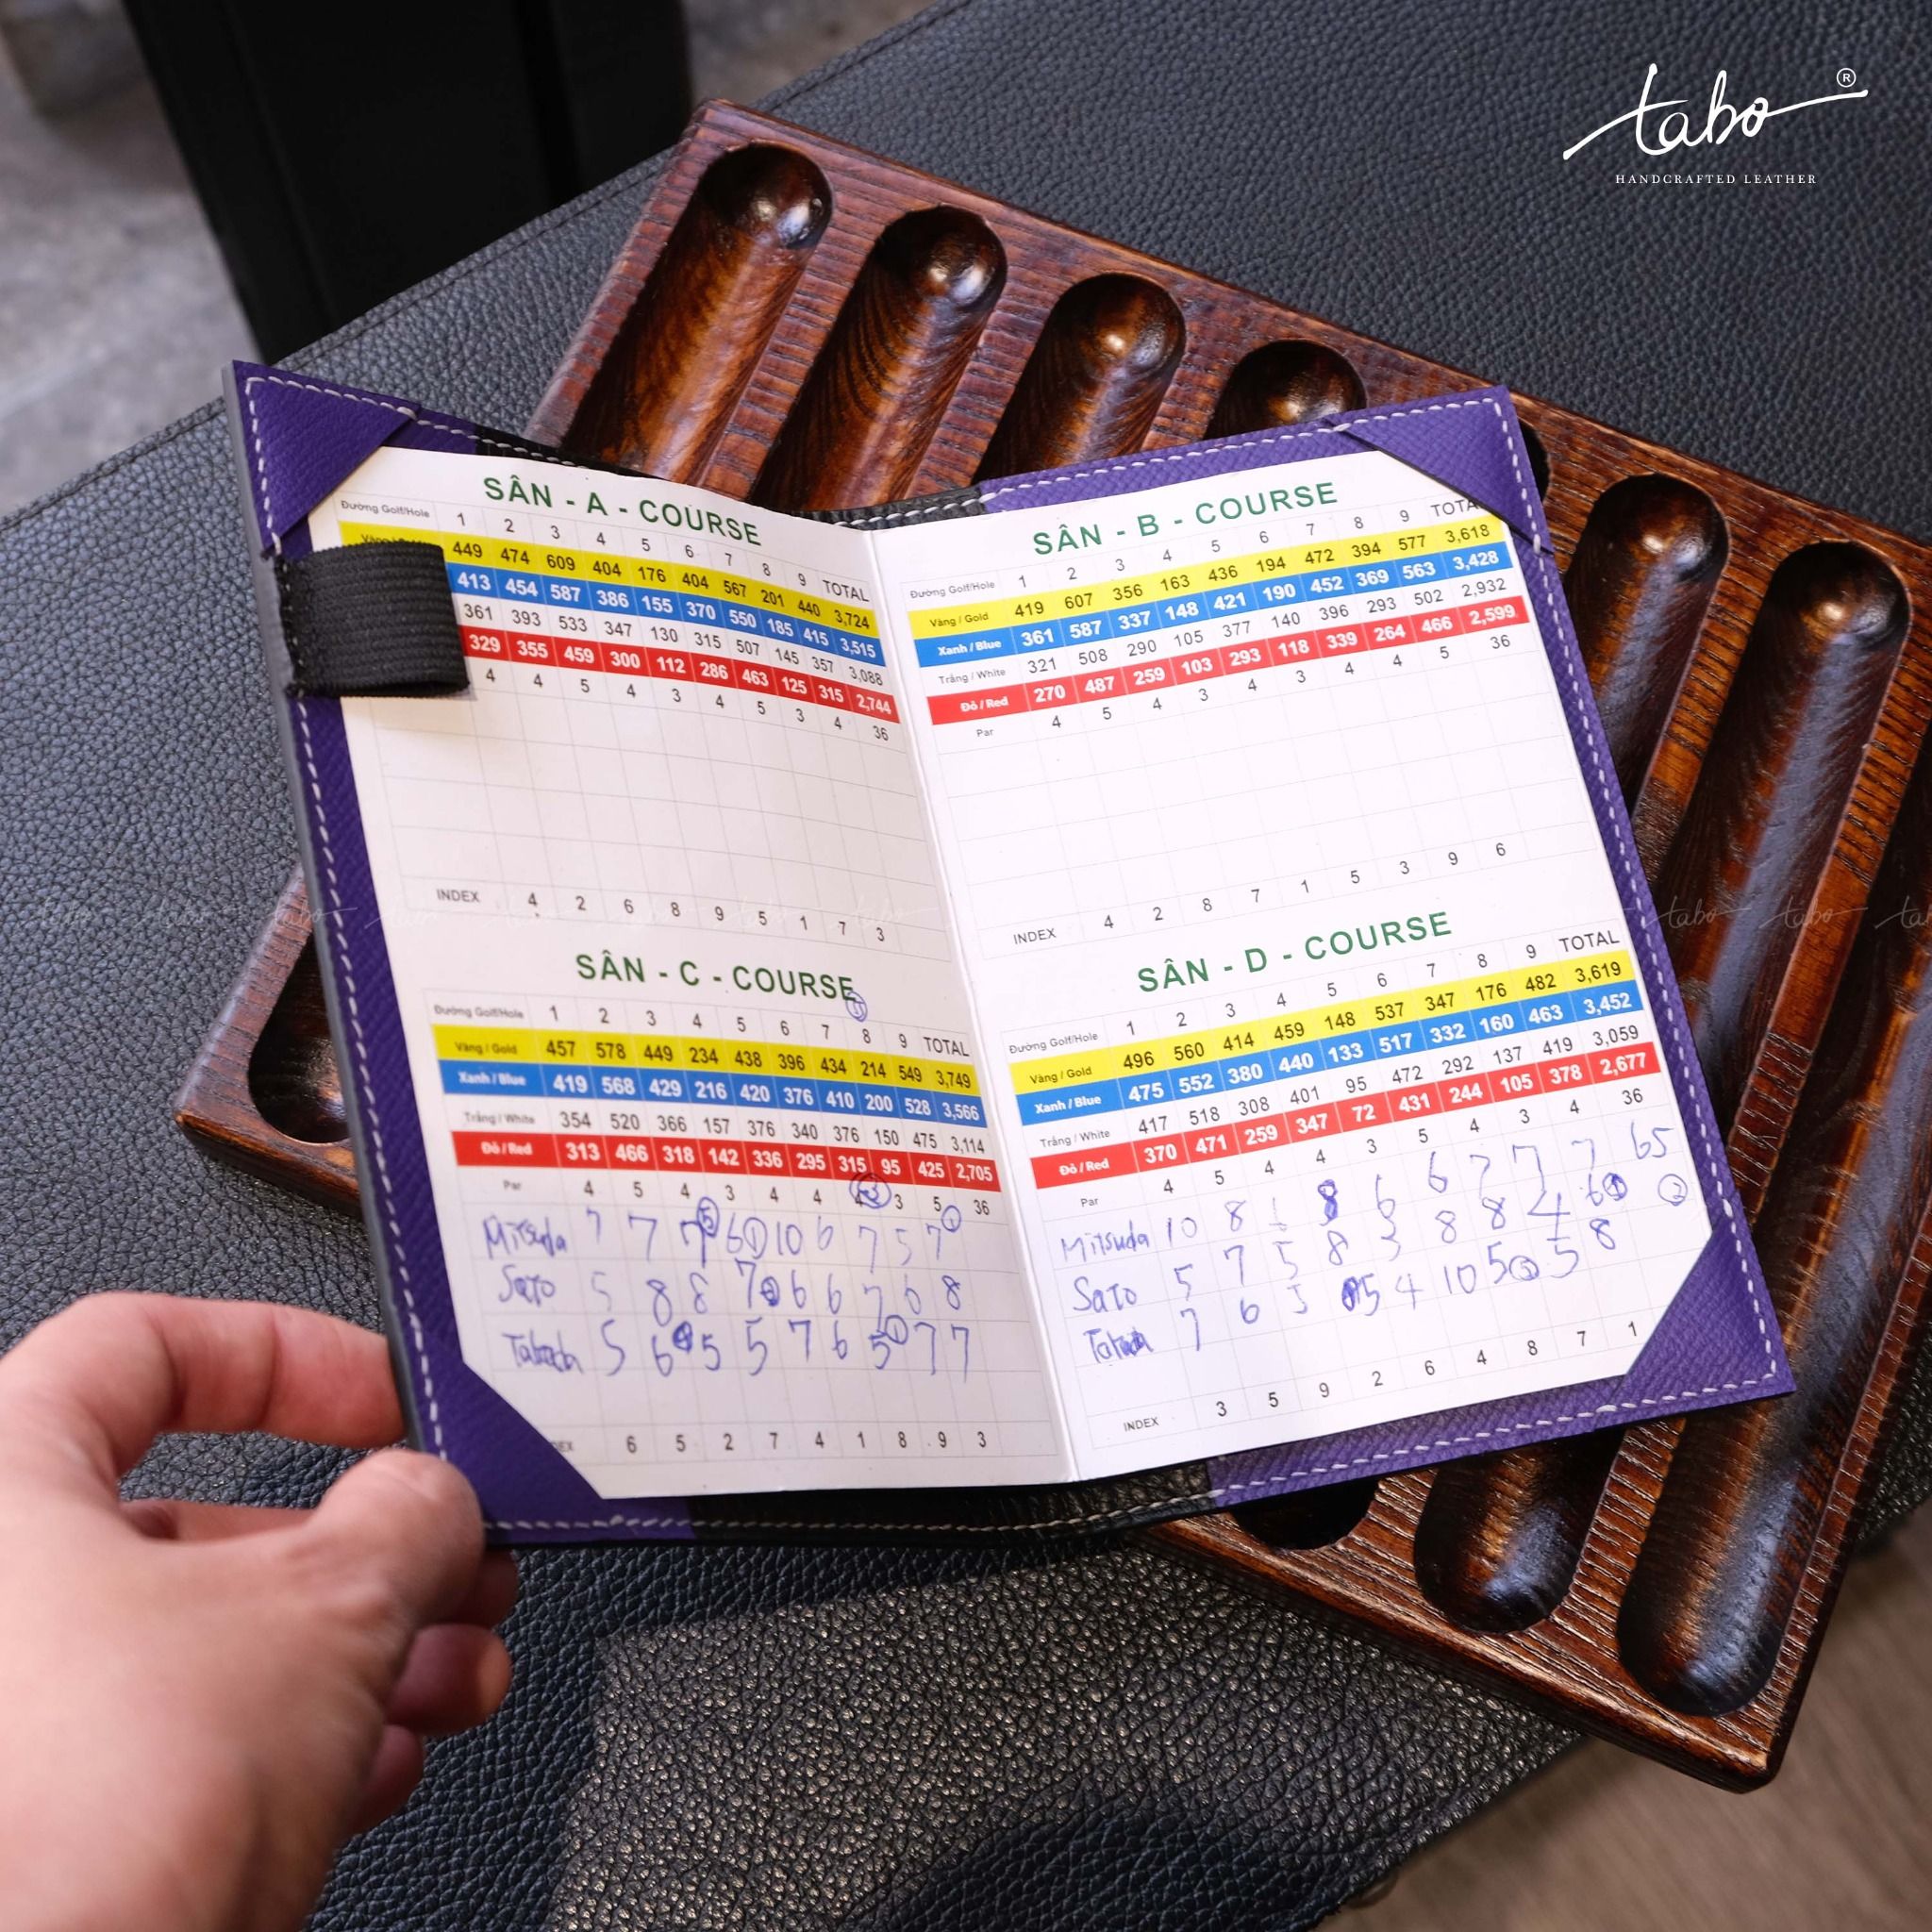 tabo ®
HANDCRAFTED LEATHER
SÂN - A - COURSE
Đường Golf/Hole 1 2 3 4 5 6 7 8 9 TOTAL
449 474 609 404 176 404 567 201 440 3,724
413 454 587 386 155 370 550 185 415 3,515
361 393 533 347 130 315 507 145 357 3,088
329 355 459 300 112 286 463 125 315 2,744
4 4 5 4 3 4 5 3 4 36
INDEX 4 2 6 8 9 5 1 7 3
SÂN - B - COURSE
Đường Golf/Hole 1 2 3 4 5 6 7 8 9 TOTAL
Vàng / Gold 419 607 356 163 436 194 472 394 577 3,618
Xanh / Blue 361 587 337 148 421 190 452 369 563 3,428
Trắng / White 321 508 290 105 377 140 396 293 502 2,932
Đỏ / Red 270 487 259 103 293 118 339 264 466 2,599
Par 4 5 4 3 4 3 4 4 5 36
INDEX 4 2 8 7 1 5 3 9 6
SÂN - C - COURSE
Đường Golf/Hole 1 2 3 4 5 6 7 8 9 TOTAL
Vàng / Gold 457 578 449 234 438 396 434 214 549 3,749
Xanh / Blue 419 568 429 216 420 376 410 200 528 3,566
Trắng / White 354 520 366 157 376 340 376 150 475 3,114
Đỏ / Red 313 466 318 142 336 295 315 95 425 2,705
Par 4 5 4 3 4 4 4 3 5 36
Mitsuda 7 7 7 6 10 6 7 5 7
Sato 5 8 8 7 6 6 7 6 8
5 6 5 5 7 6 5 7 7
6 5 2 7 4 1 8 9 3
SÂN - D - COURSE
Đường Golf/Hole 1 2 3 4 5 6 7 8 9 TOTAL
Vàng / Gold 496 560 414 459 148 537 347 176 482 3,619
Xanh / Blue 475 552 380 440 133 517 332 160 463 3,452
Trắng / White 417 518 308 401 95 472 292 137 419 3,059
Đỏ / Red 370 471 259 347 72 431 244 105 378 2,677
Par 4 5 4 4 3 5 4 3 4 36
Mitsuda 10 8 6 8 6 6 7 7 7 65
Sato 5 7 5 8 3 8 8 4 6
7 6 5 5 4 10 5 5 8
INDEX 3 5 9 2 6 4 8 7 1